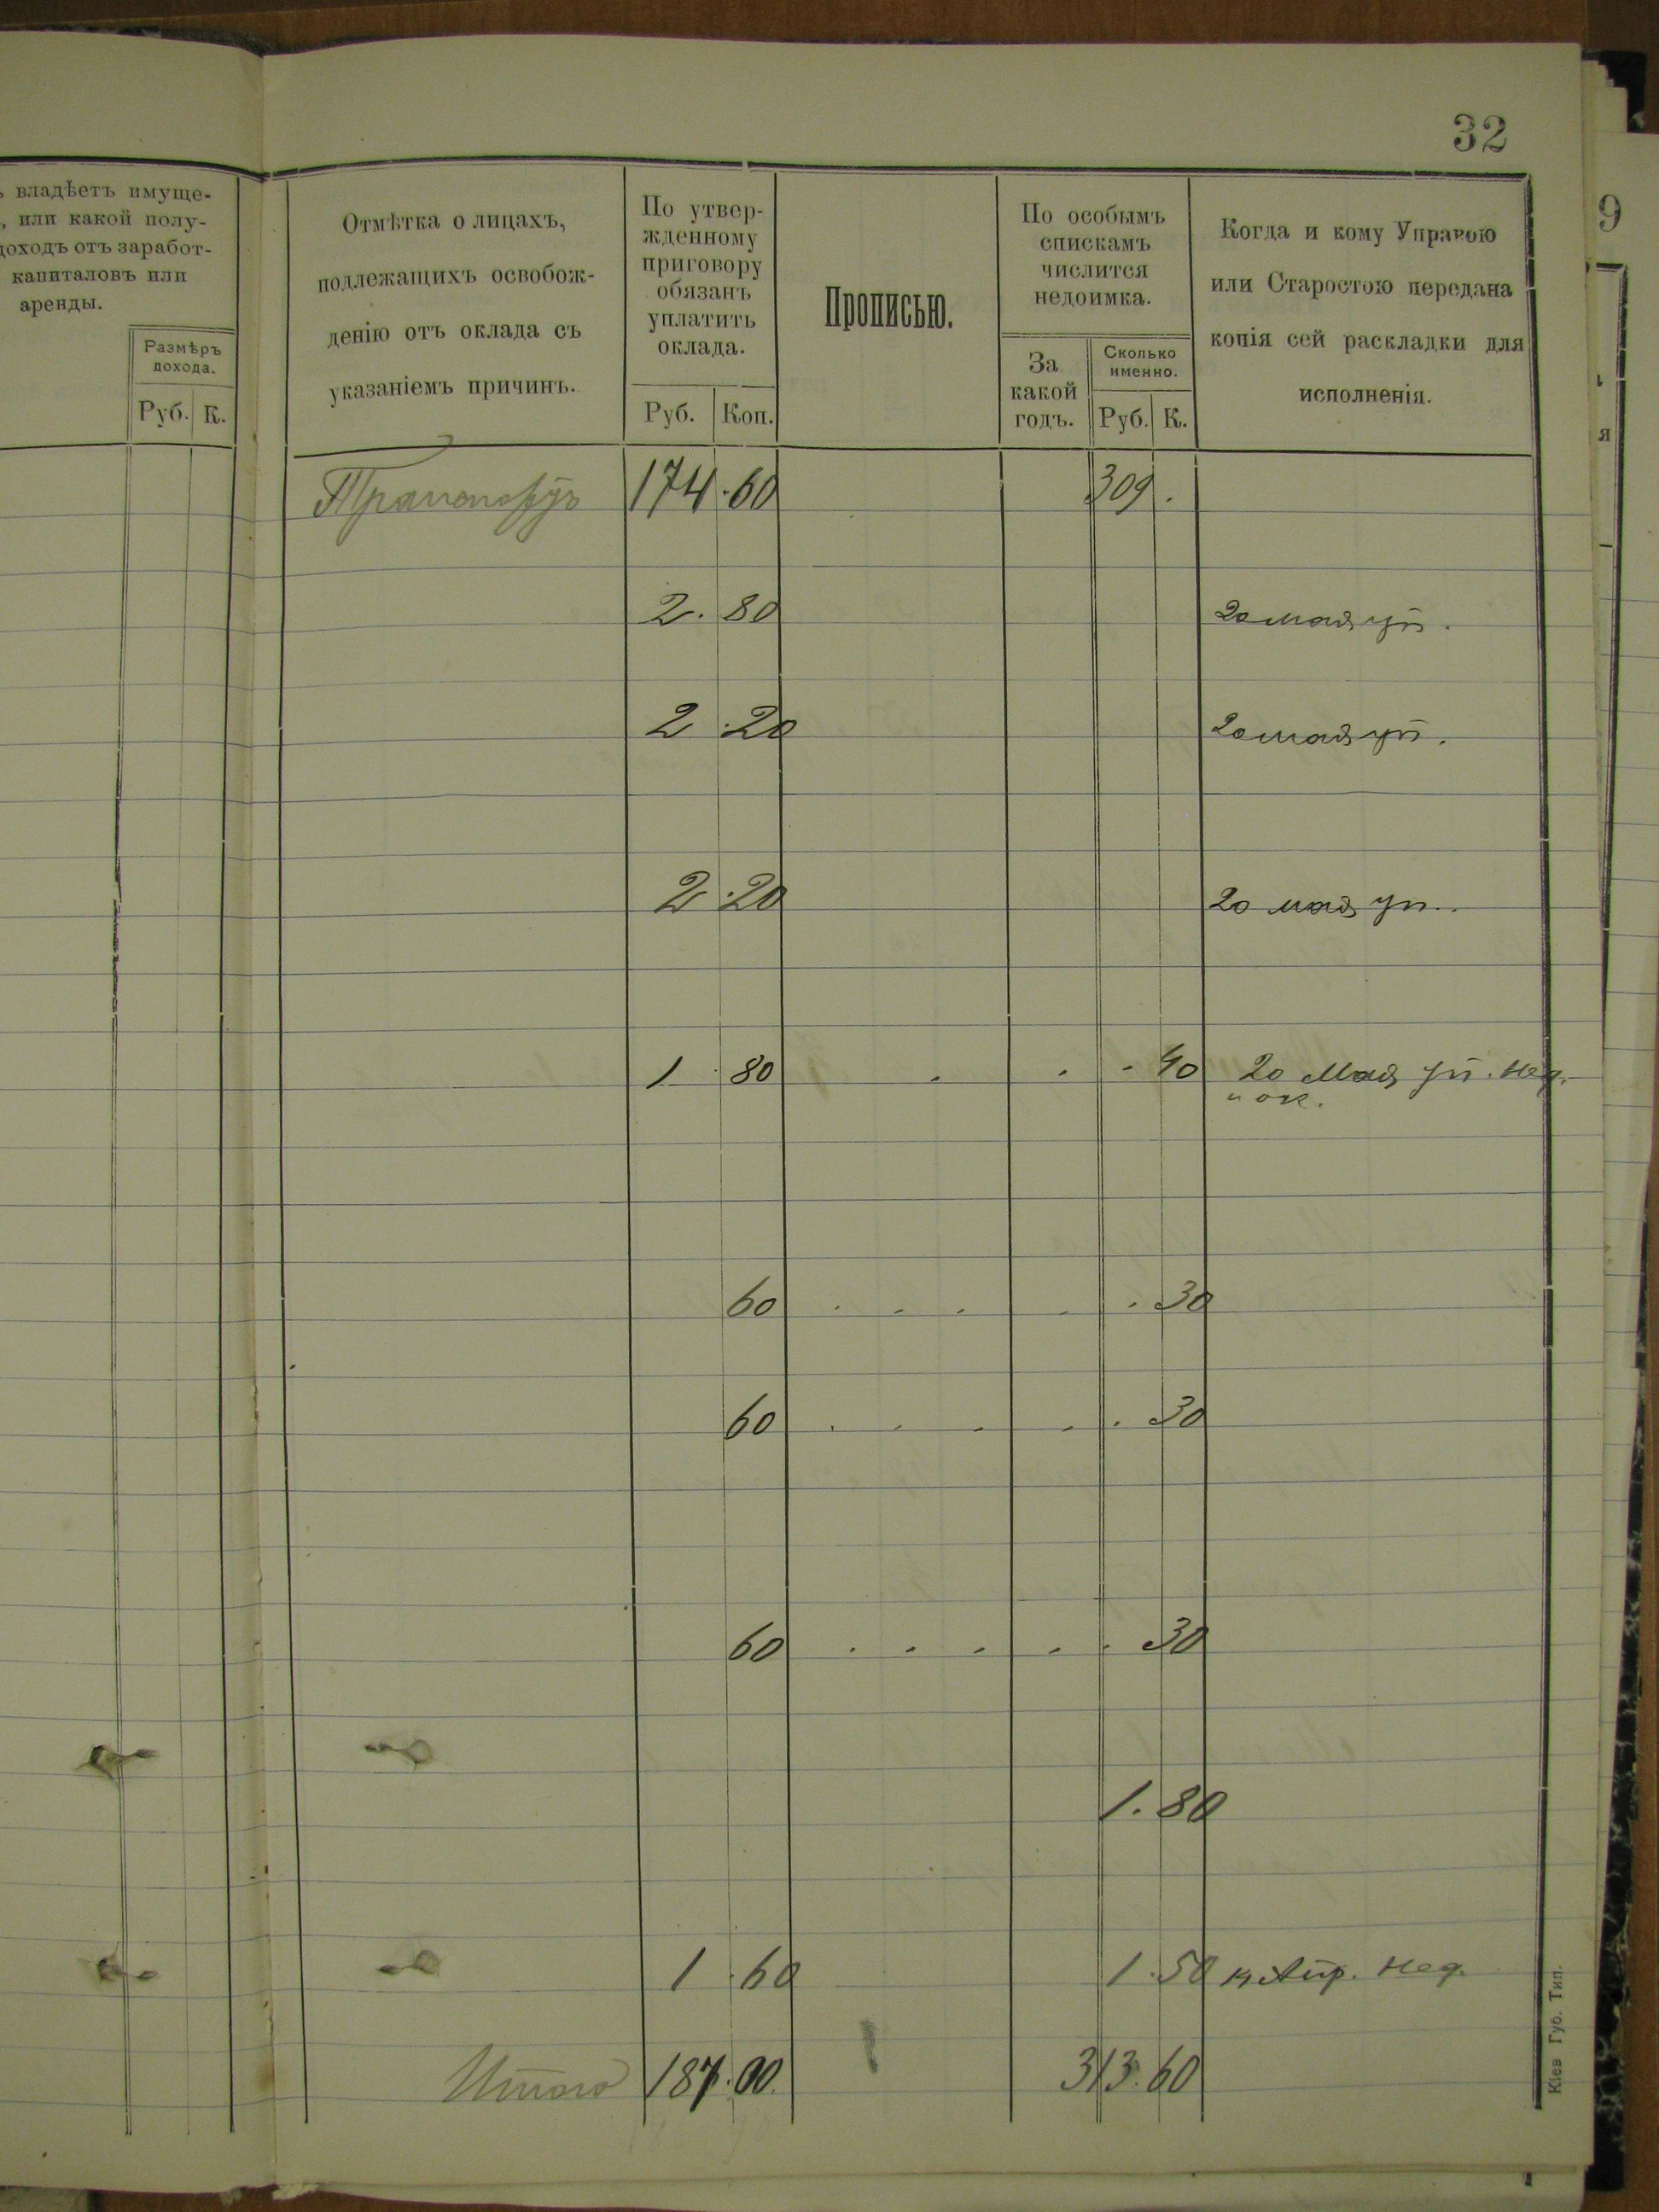 32
ъ владѣетъ имуще-
, или какой полу-
доходъ отъ заработ-
капиталовъ или
аренды.
Размѣръ
дохода.
Руб. К.
Отмѣтка о лицахъ,
подлежащихъ освобож-
денію отъ оклада съ
указаніемъ причинъ.
По утвер-
жденному
приговору
обязанъ
уплатить
оклада.
Руб. Коп.
Прописью.
По особымъ
спискамъ
числится
недоимка.
За
какой
годъ.
Сколько
именно.
Руб. К.
Когда и кому Управою
или Старостою передана
копія сей раскладки для
исполненія.
9
я
Транспортъ 174.60 309.
2.80 20 мая уп.
2.20 20 мая уп.
2.20 20 мая уп.
1.80 40 20 Мая уп. Нед.
и ок.
60 30
60 30
60 30
1.80
1.60 1.50 Апр. Нед.
Итого 187.00. 313.60
Кіев Губ. Тип.